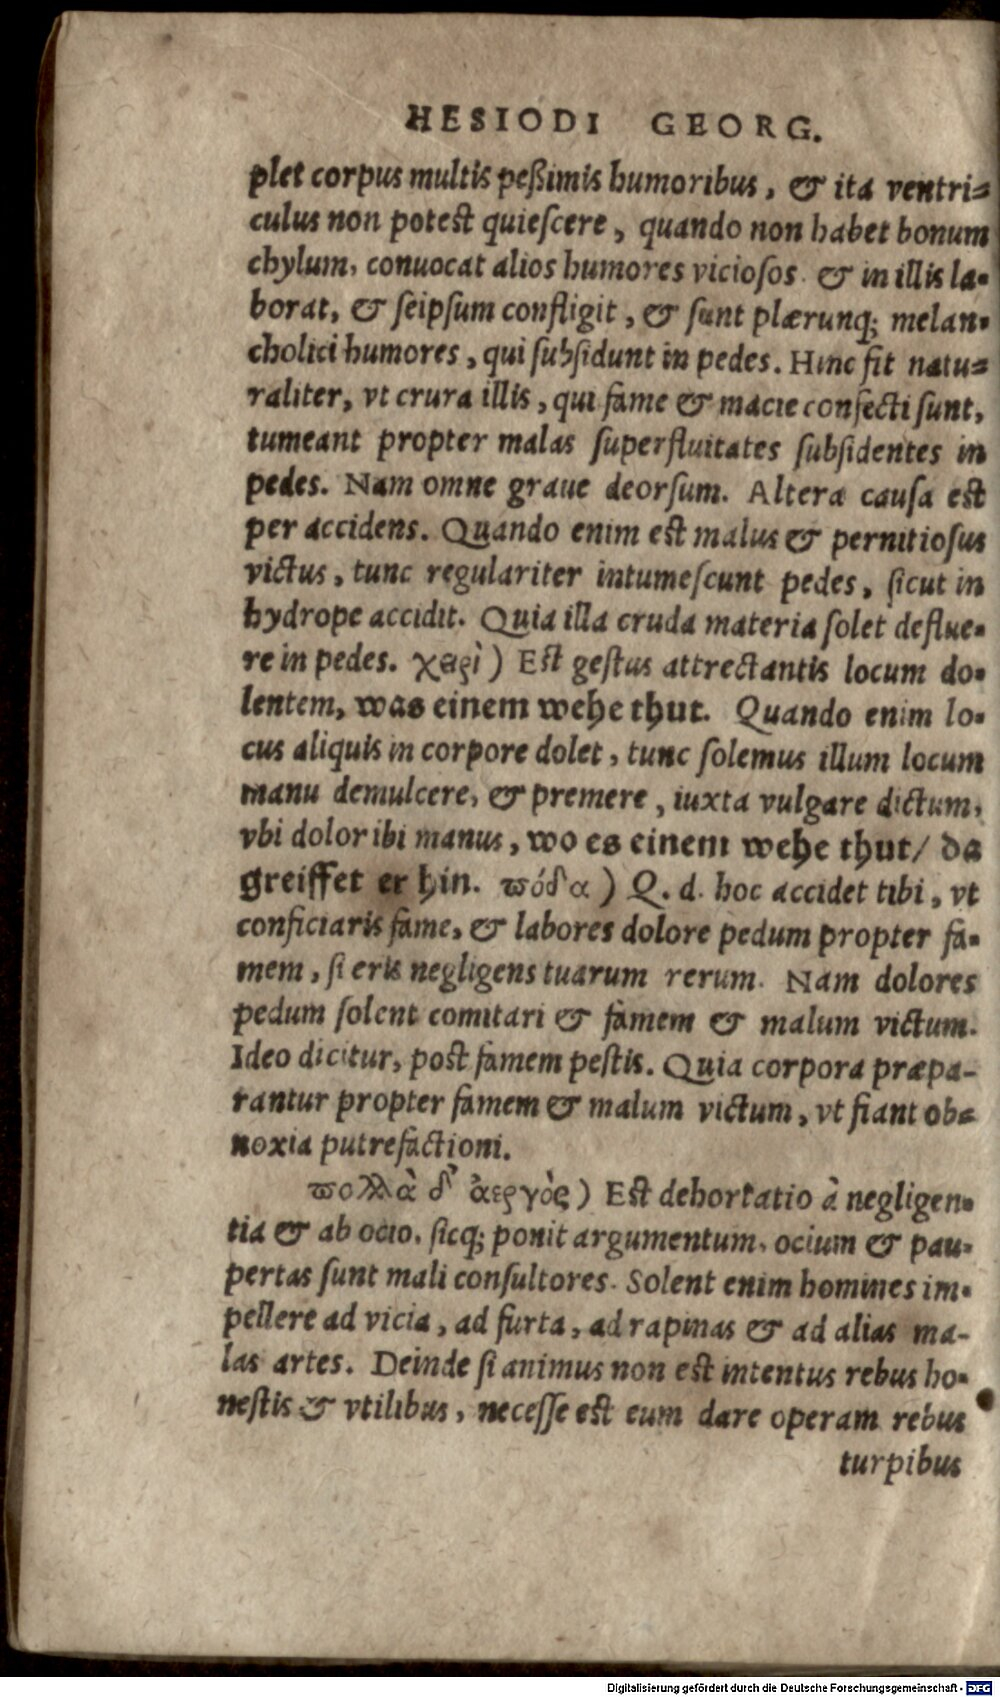 HESIODI GEORG.
plet corpus multis peßimis humoribus, & ita ventri=
culus non potest quieſcere, quando non habet bonum
chylum, conuocat alios humores vicioſos. & in illis la=
borat, & ſeipſum confligit, & ſunt plærunq; melan=
cholici humores, qui ſubſidunt in pedes. Hinc fit natu=
raliter, vt crura illis, qui fame & macie confecti ſunt,
tumeant propter malas ſuperfluitates ſubſidentes in
pedes. Nam omne graue deorſum. Altera cauſa est
per accidens. Quando enim est malus & pernitioſus
victus, tunc regulariter intumeſcunt pedes, ſicut in
hydrope accidit. Quia illa cruda materia ſolet deflue=
re in pedes. χειρὶ) Est geſtus attrectantis locum do=
lentem, was einem wehe thut. Quando enim lo=
cus aliquis in corpore dolet, tunc ſolemus illum locum
manu demulcere, & premere, iuxta vulgare dictum,
vbi dolor ibi manus, wo es einem wehe thut/ da
greiffet er hin. πόδα) Q. d. hoc accidet tibi, vt
conficiaris fame, & labores dolore pedum propter fa=
mem, ſi eris negligens tuarum rerum. Nam dolores
pedum ſolent comitari & famem & malum victum.
Ideo dicitur, post famem peſtis. Quia corpora præpa-
rantur propter famem & malum victum, vt fiant ob=
noxia putrefactioni.
πολλὰ δ' ἀεργὸς) Est dehortatio à negligen=
tia & ab ocio, ſicq; ponit argumentum, ocium & pau=
pertas ſunt mali conſultores. Solent enim homines im=
pellere ad vicia, ad furta, ad rapinas & ad alias ma-
las artes. Deinde ſi animus non est intentus rebus ho=
neſtis & vtilibus, neceſſe est eum dare operam rebus
turpibus
Digitalisierung gefördert durch die Deutsche Forschungsgemeinschaft - DFG